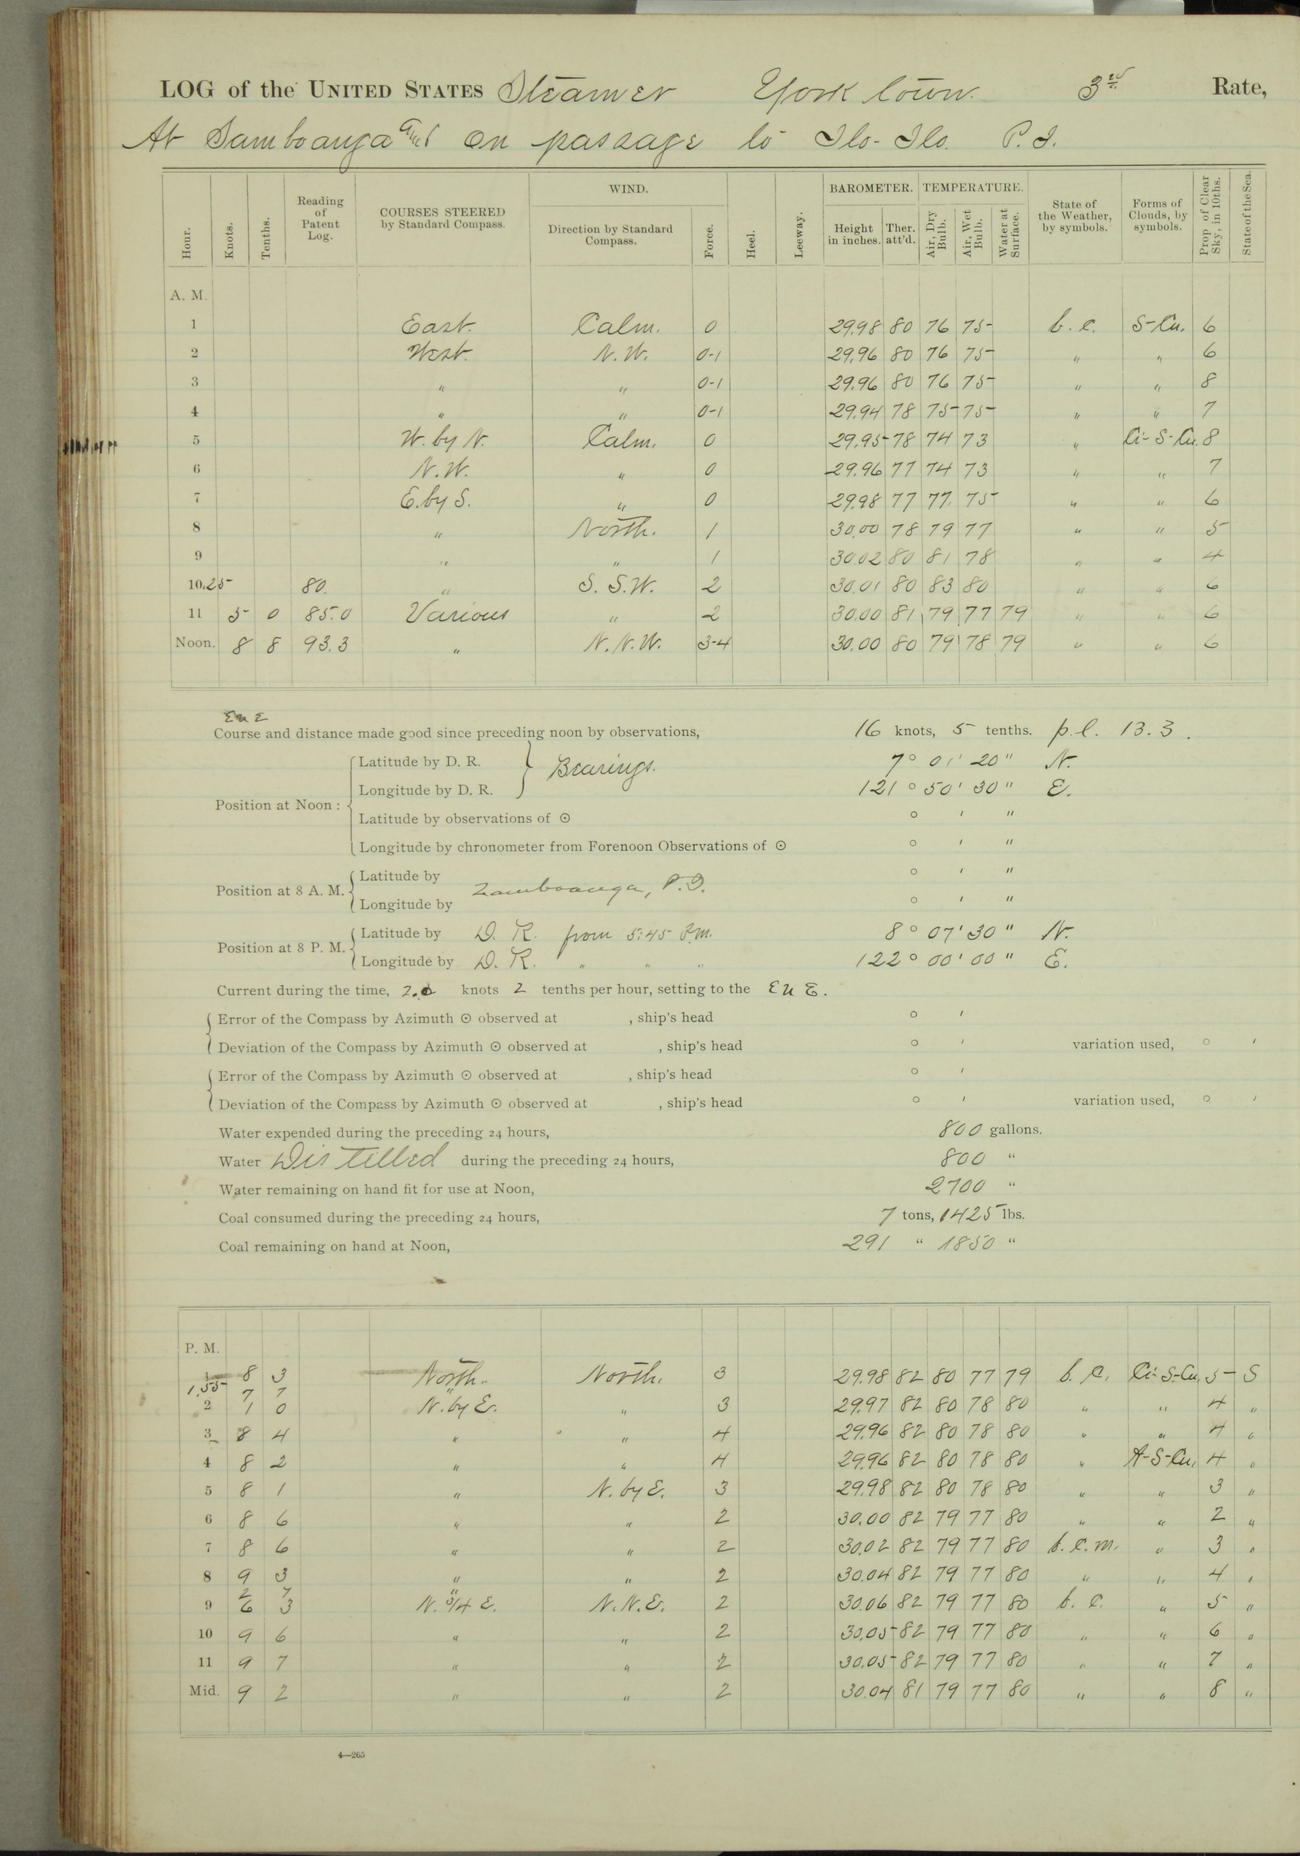 LOG of the UNITED STATES Steamer Yorktown. 3rd Rate,
At Samboanga and on passage to Ilo-Ilo P.I.
Hour. Knots. Tenths. Reading of Patent Log. COURSES STEERED by Standard Compass. WIND. Direction by Standard Compass. Force. Heel. Leeway. BAROMETER. Height in inches. Ther. att'd. TEMPERATURE. Air, Dry Bulb. Air, Wet Bulb. Water at Surface. State of the Weather, by symbols. Forms of Clouds, by symbols. Prop. of Clear Sky, in 10ths. State of the Sea.
A. M.
1 East. Calm. 0 29.98 80 76 75 b.c. S-Cu. 6
2 West. N.W. 0-1 29.96 80 76 75 " " 6
3 " " 0-1 29.96 80 76 75 " " 8
4 " " 0-1 29.94 78 75 75 " " 7
5 W. by N. Calm. 0 29.95 78 74 73 " Ci-S-Cu. 8
6 N.W. " 0 29.96 77 74 73 " " 7
7 E. by S. " 0 29.98 77 77 75 " " 6
8 " North. 1 30.00 78 79 77 " " 5
9 " " 1 30.02 80 81 78 " " 4
10.25 80. " S.S.W. 2 30.01 80 83 80 " " 6
11 5 0 85.0 Various " 2 30.00 81 79 77 79 " " 6
Noon. 8 8 93.3 " N.N.W. 3-4 30.00 80 79 78 79 " " 6
E N E
Course and distance made good since preceding noon by observations, 16 knots, 5 tenths. p.l. 13.3.
Latitude by D. R. Bearings. 7° 01' 20" N.
Longitude by D. R. 121° 50' 30" E.
Position at Noon :
Latitude by observations of ☉ ° ' "
Longitude by chronometer from Forenoon Observations of ☉ ° ' "
Latitude by ° ' "
Position at 8 A. M. Zamboanga, P.I.
Longitude by ° ' "
Latitude by D. R. from 5:45 P.m. 8° 07' 30" N.
Position at 8 P. M.
Longitude by D. R. " " " 122° 00' 00" E.
Current during the time, 2.0 knots 2 tenths per hour, setting to the E N E.
Error of the Compass by Azimuth ☉ observed at , ship's head ° '
Deviation of the Compass by Azimuth ☉ observed at , ship's head ° ' variation used, ° '
Error of the Compass by Azimuth ☉ observed at , ship's head ° '
Deviation of the Compass by Azimuth ☉ observed at , ship's head ° ' variation used, ° '
Water expended during the preceding 24 hours, 800 gallons.
Water Distilled during the preceding 24 hours, 800 "
Water remaining on hand fit for use at Noon, 2700 "
Coal consumed during the preceding 24 hours, 7 tons, 1425 lbs.
Coal remaining on hand at Noon, 291 " 1850 "
P. M.
1 8 3 North. North. 3 29.98 82 80 77 79 b.c. Ci-S-Cu. 5 S
1.55 7 7 "
2 1 0 N. by E. " 3 29.97 82 80 78 80 " " 4 "
3 8 4 " " 4 29.96 82 80 78 80 " " 4 "
4 8 2 " " 4 29.96 82 80 78 80 " A-S-Cu. 4 "
5 8 1 " N. by E. 3 29.98 82 80 78 80 " " 3 "
6 8 6 " " 2 30.00 82 79 77 80 " " 2 "
7 8 6 " " 2 30.02 82 79 77 80 b.c.m. " 3 "
8 9 3 " " 2 30.04 82 79 77 80 " " 4 "
2 7 "
9 6 3 N. 3/4 E. N.N.E. 2 30.06 82 79 77 80 b.c. " 5 "
10 9 6 " " 2 30.05 82 79 77 80 " " 6 "
11 9 7 " " 2 30.05 82 79 77 80 " " 7 "
Mid. 9 2 " " 2 30.04 81 79 77 80 " " 8 "
4—265